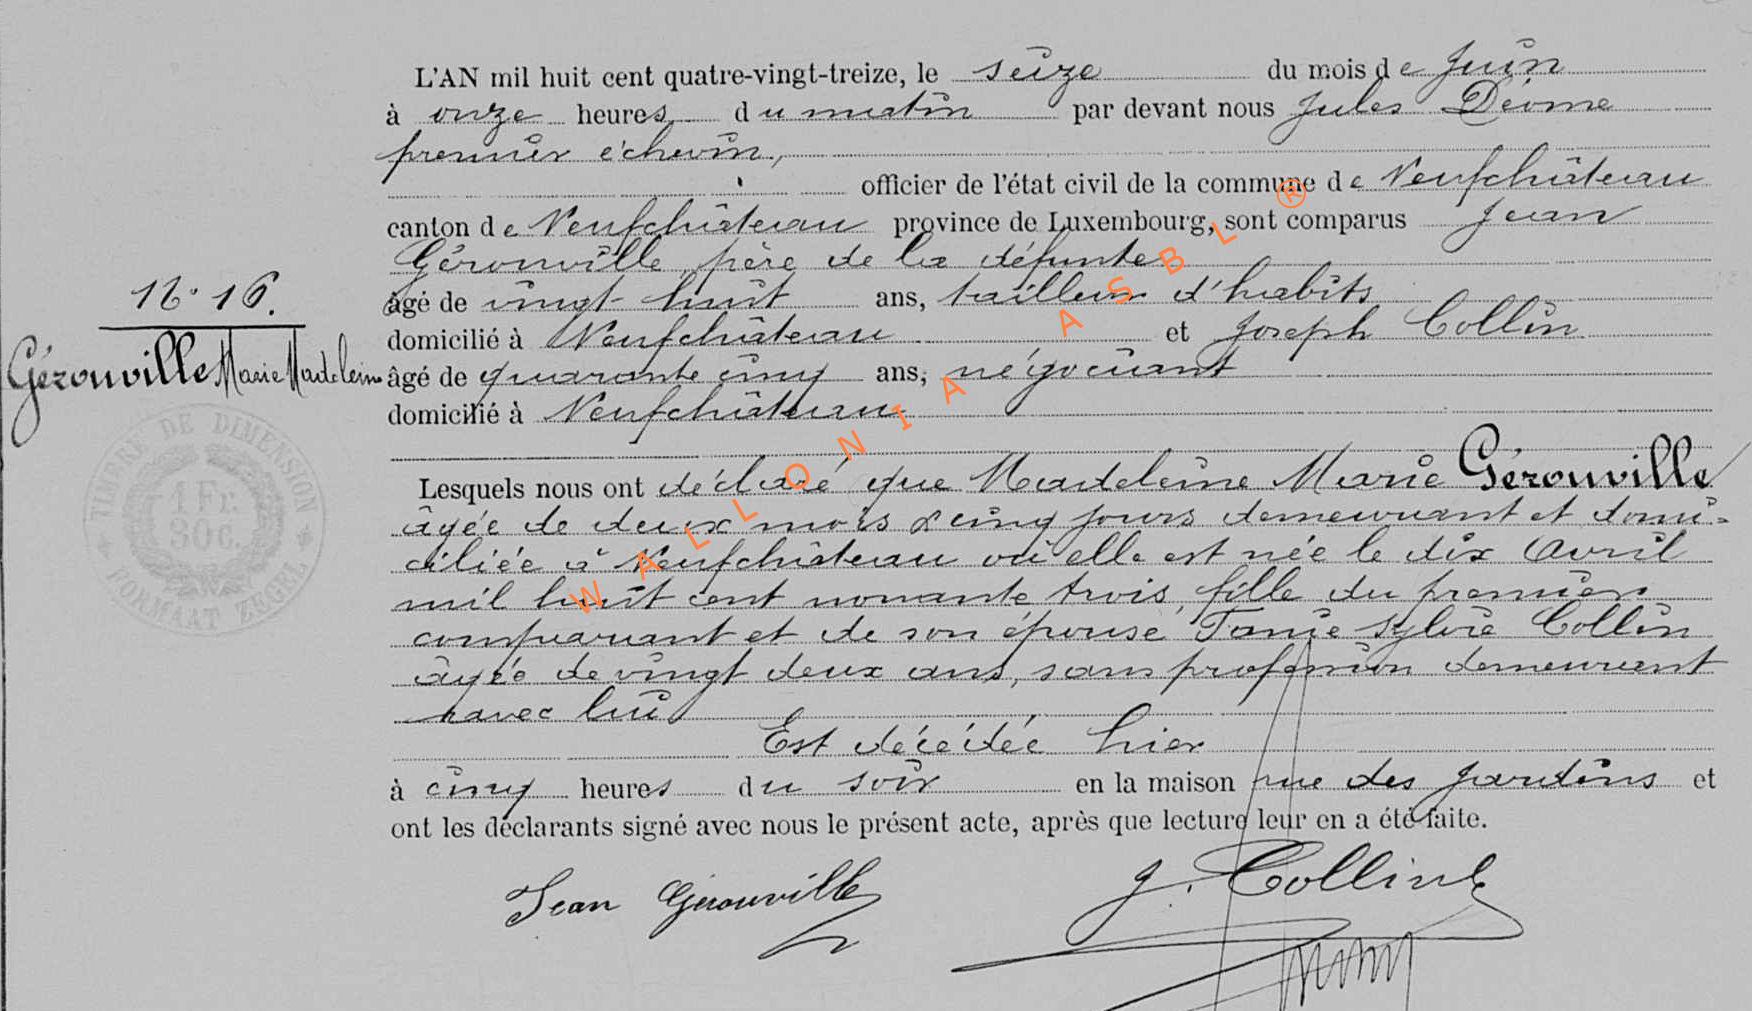 L'AN mil huit cent quatre-vingt-treize, le seize du mois de Juin
à onze heures du matin par devant nous Jules Déome
premier échevin,
officier de l'état civil de la commune de Neufchâteau
canton de Neufchâteau province de Luxembourg, sont comparus Jean
Gérouville, père de la défunte
âgé de vingt-huit ans, tailleur d'habits
domicilié à Neufchâteau et Joseph Collin
âgé de quarante cinq ans, négociant
domicilié à Neufchâteau
N° 16.
Gérouville Marie Madeleine
TIMBRE DE DIMENSION
1 Fr.
30 C.
FORMAAT ZEGEL
Lesquels nous ont déclaré que Madeleine Marie Gérouville
âgée de deux mois & cinq jours demeurant et domi-
ciliée à Neufchâteau où elle est née le dix Avril
mil huit cent nonante trois, fille du premier
comparant et de son épouse Sylvie Collin
âgée de vingt deux ans, sans profession demeurant
avec lui
Est décédée hier
à cinq heures du soir en la maison rue des Jardins et
ont les déclarants signé avec nous le présent acte, après que lecture leur en a été faite.
Jean Gérouville
J. Collin
WALLONIA ASBL ®